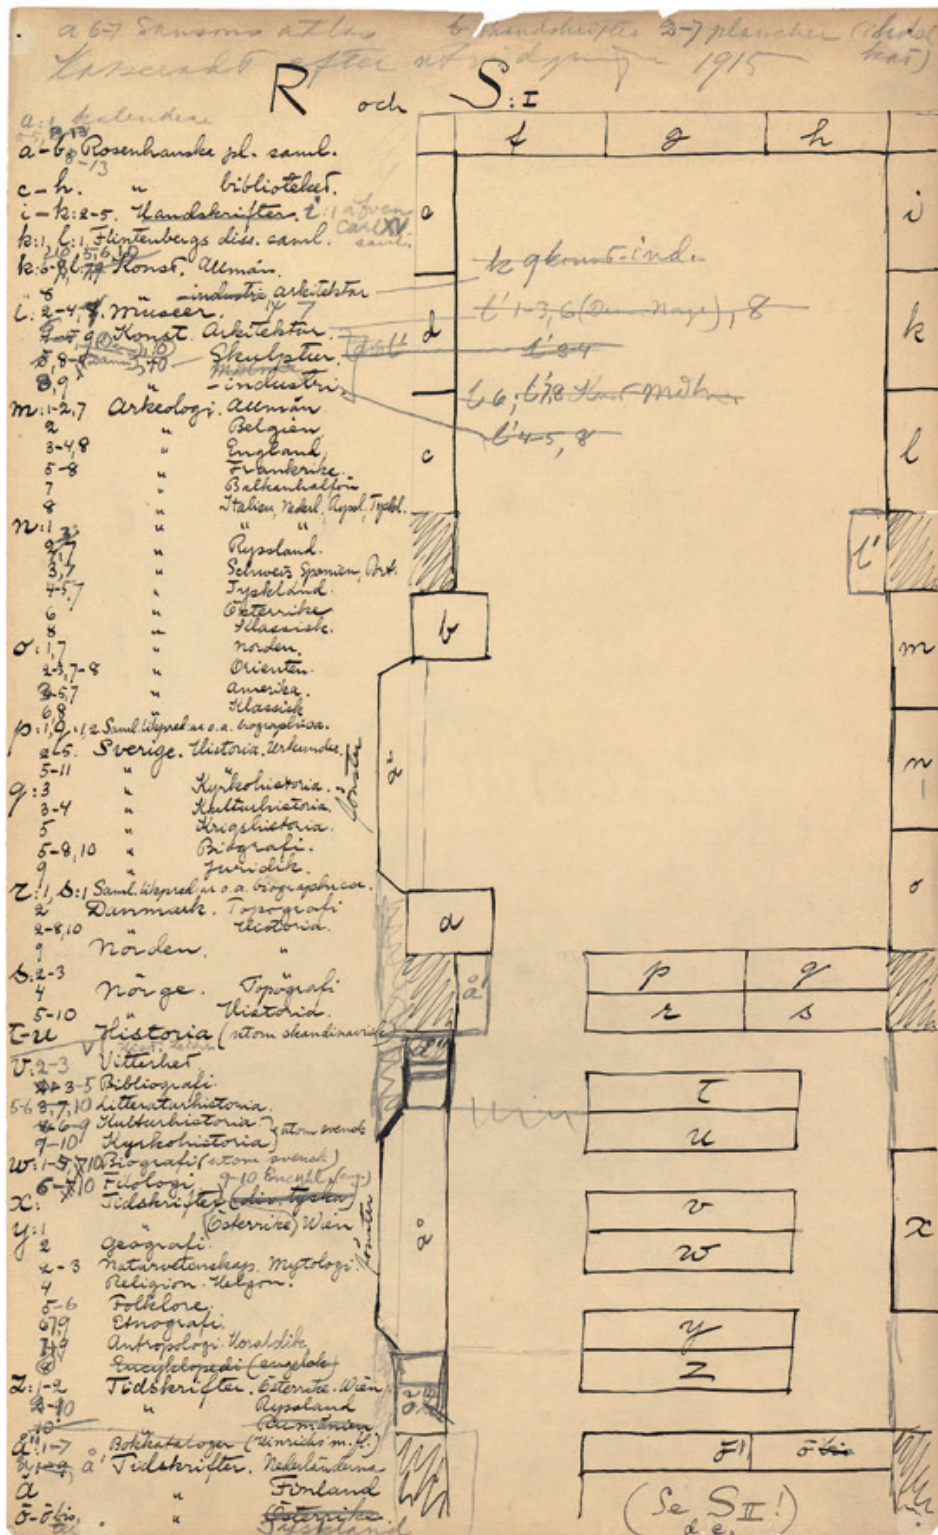 a 6-7 Sansons atlas b handskrifter 2-7 plancher
efter 1915
R och S:I
a:1 kalendere
a-b Rosenhanske pl. saml.
c-h. " biblioteket.
i-k:2-5. Handskrifter. i:1 även Carl XV saml.
k:1, l:1, Flintenbergs diss. saml.
Konst. Allmän.
8 " -industri arkitektur
l: 2-4, Museer. 7
9 Konst. Arkitektur.
Skulptur
8,9 " -industri
m:1-2,7 Arkeologi. Allmän
2 " Belgien
3-4,8 " England
5-8 " Frankrike.
7 " Balkanhalfön
8 " Italien, Nederl., Ryssl., Tyskl.
n:1 " "
2,7 " Ryssland.
3,7 " Schweiz Spanien, Port.
4-5,7 " Tyskland.
6 " Österrike
8 " Klassisk.
o:1,7 " Norden.
2-3,7-8 " Orienten.
3-5,7 " Amerika.
6,8 " Klassisk
p:1, q:1,2 Saml. likpred.ar o.a. biographica.
2-5. Sverige. Historia. Urkunder.
5-11 " "
q:3 " Kyrkohistoria.
3-4 " Kulturhistoria.
5 " Krigshistoria.
5-8,10 " Biografi.
9 " Juridik.
r:1, s:1 Saml. likpred.ar o.a. biographica.
2 Danmark. Topografi
2-8,10 " Historia.
9 Norden. "
s:2-3 "
4 Norge. Topografi
5-10 " Historia.
t-u Historia (utom skandinavisk)
v:2-3 Vitterhet
3-5 Bibliografi.
5-6 8,7,10 Litteraturhistoria.
6-9 Kulturhistoria
9-10 Kyrkohistoria } utom svensk
w:1-5,7,10 Biografi (utom svensk)
6-10 Filologi. 9-10 Encykl. (eng.)
x: Tidskrifter (div. tyska)
y:1 " (Österrike) Wien
2 Geografi.
2-3 Naturvetenskap. Mytologi.
4 Religion. Helgon.
5-6 Folklore.
6,7,9 Etnografi.
7,9 Antropologi. Heraldik
8 Encyklopedi (engelsk)
z:1-2 Tidskrifter. Österrike-Wien
2-10 " Ryssland
10 Rumänien
å":1-7 Bokkataloger (Hinrichs m.fl.)
å' Tidskrifter. Nederländerna
ä " Finland
ö-öbis " Österrike
Tyskland
f g h
e i
k 9 konst-ind.
l' 1-3,6 , 8
d k
l' 3-4
l 6; l' 7,8
l' 4-5, 8
c l
l'
b m
a" n
fönster
a o
å'
p q
r s
t
u
v
w
fönster
a° x
y
z
ö' öbis
(Se S II!)
d.e.